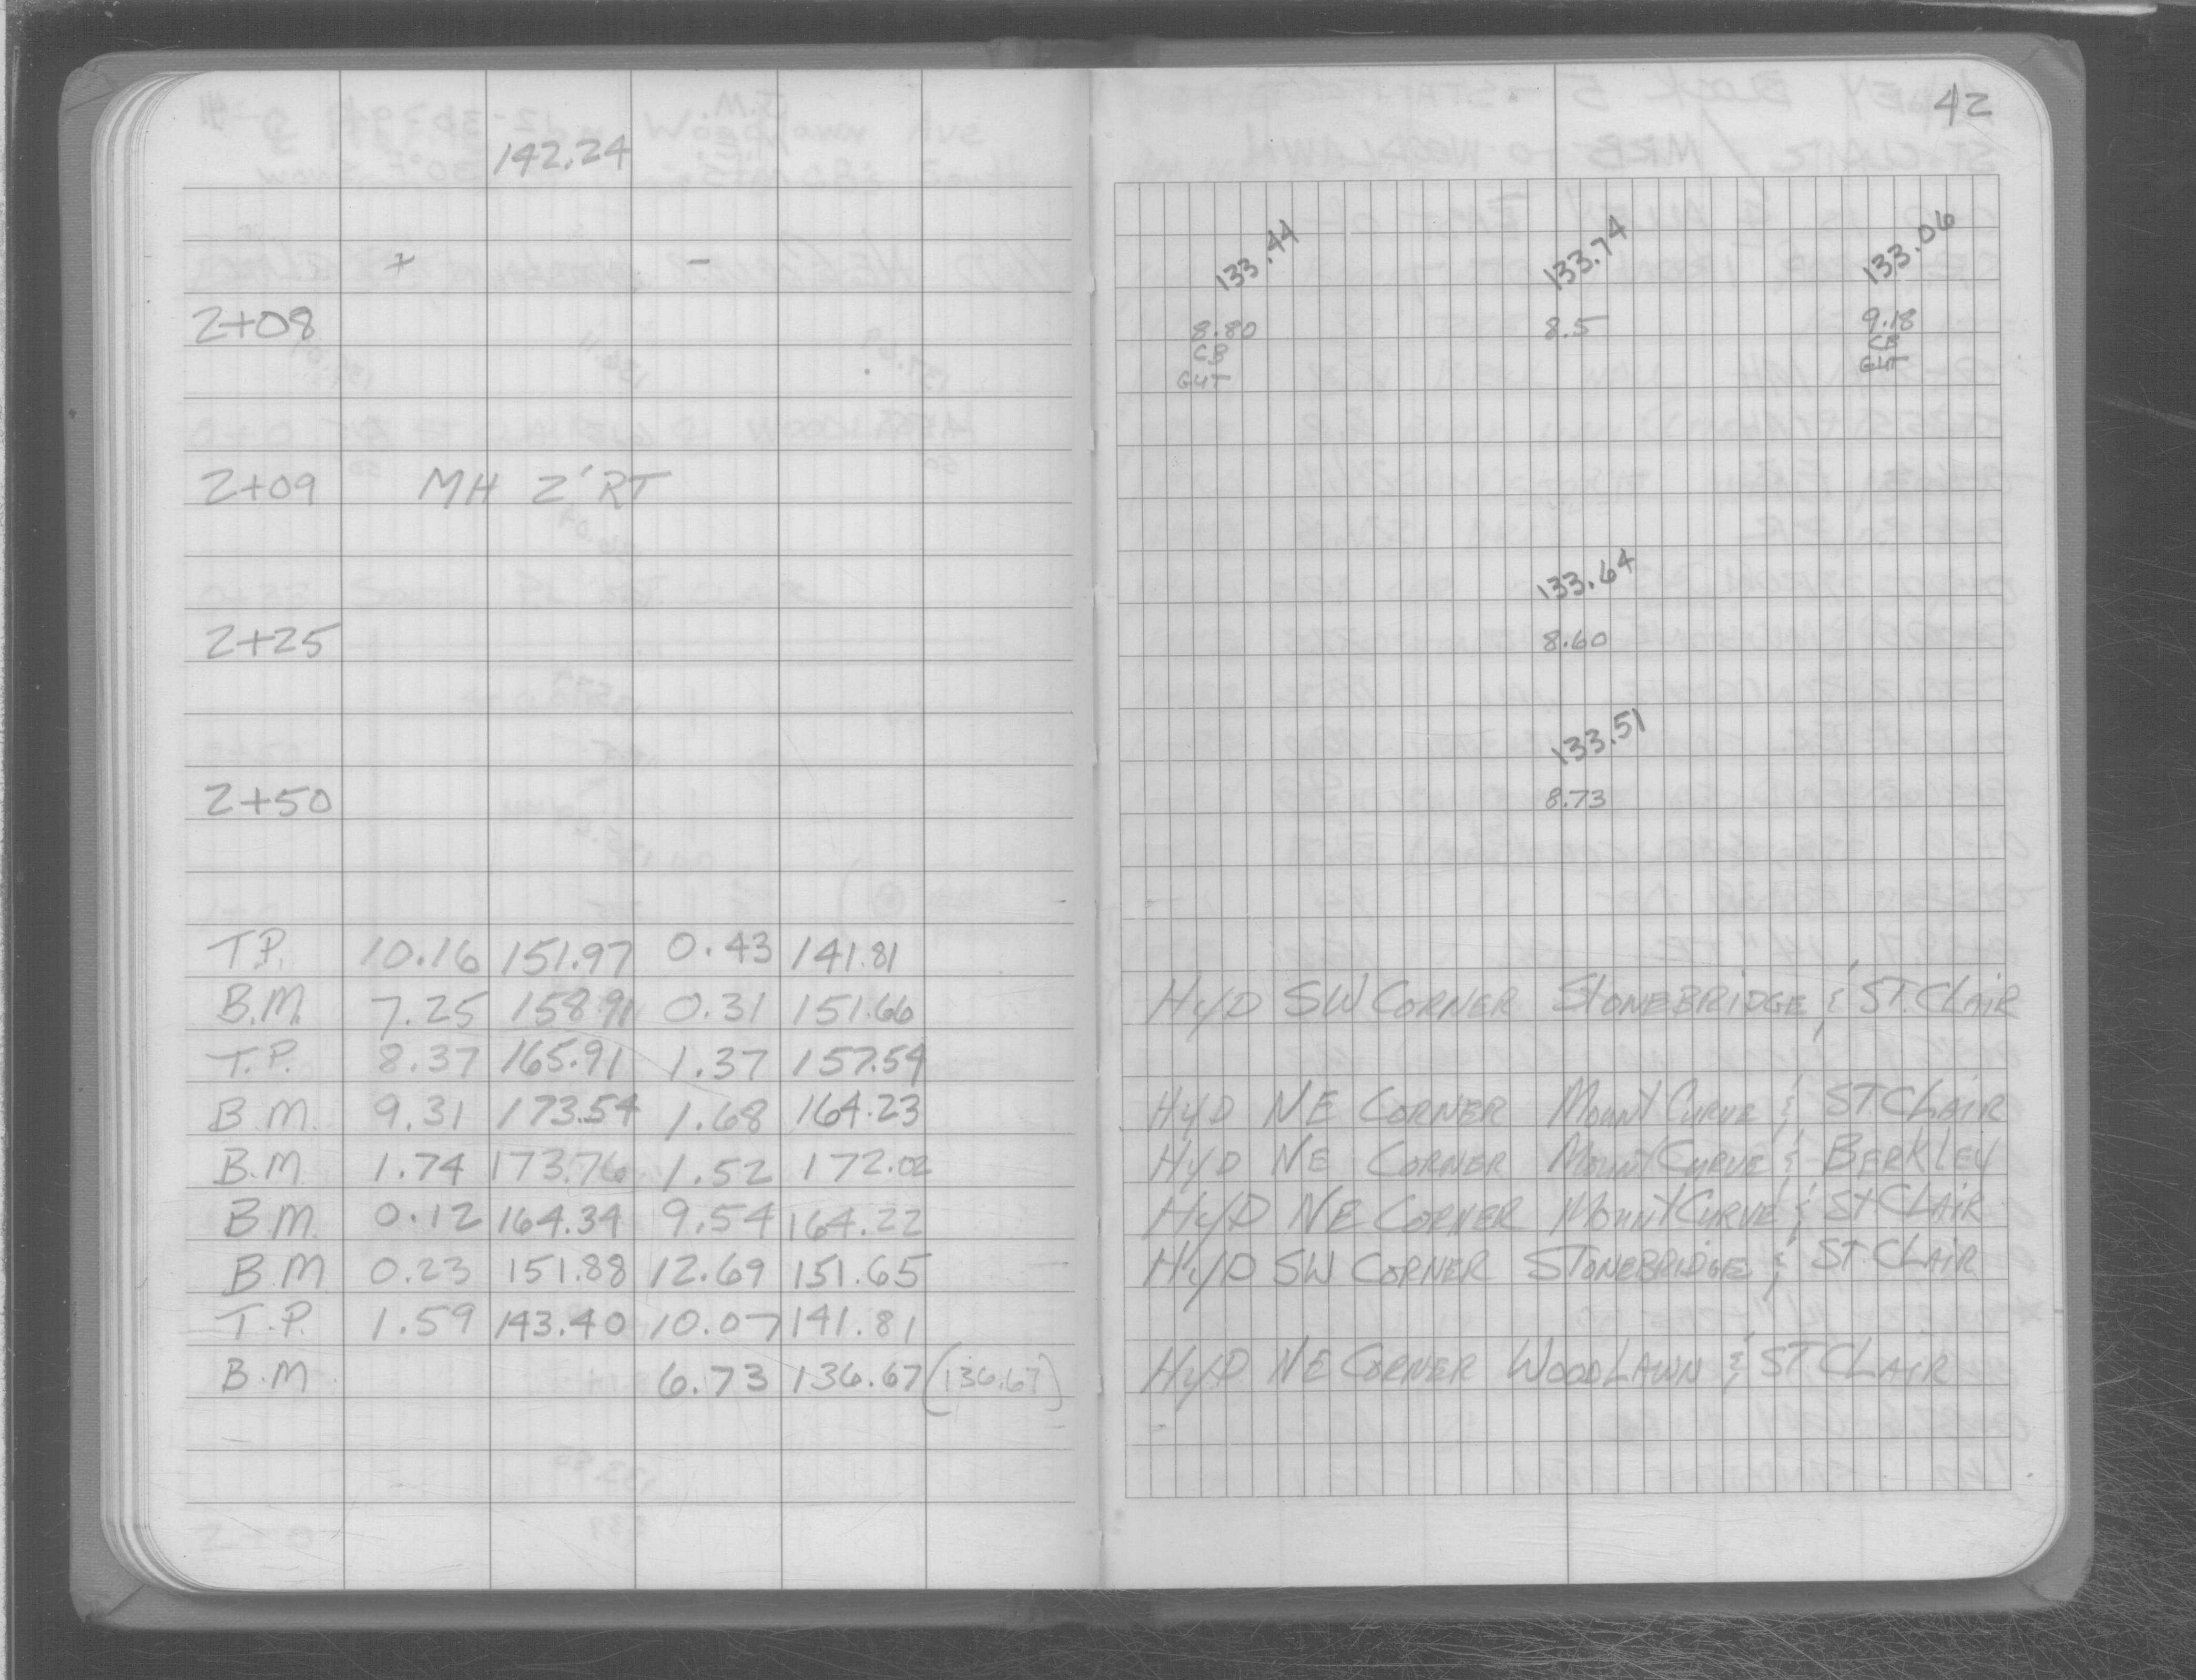 42
142.24
+ -
133.44 133.74 133.06
2+08 8.80 8.5 9.18
CB CB
GUT GUT
2+09 MH 2' RT
133.64
2+25 8.60
133.51
2+50 8.73
T.P. 10.16 151.97 0.43 141.81
B.M. 7.25 158.91 0.31 151.66 HYD SW CORNER STONEBRIDGE & ST. CLAIR
T.P. 8.37 165.91 1.37 157.54
B.M. 9.31 173.54 1.68 164.23 HYD NE CORNER MOUNT CURVE & ST CLAIR
B.M 1.74 173.76 1.52 172.02 HYD NE CORNER MOUNT CURVE & BERKLEY
B.M. 0.12 164.34 9.54 164.22 HYD NE CORNER MOUNT CURVE & ST CLAIR
B.M 0.23 151.88 12.69 151.65 HYD SW CORNER STONEBRIDGE & ST. CLAIR
T.P. 1.59 143.40 10.07 141.81
B.M 6.73 136.67 (136.67) HYD NE CORNER WOODLAWN & ST CLAIR